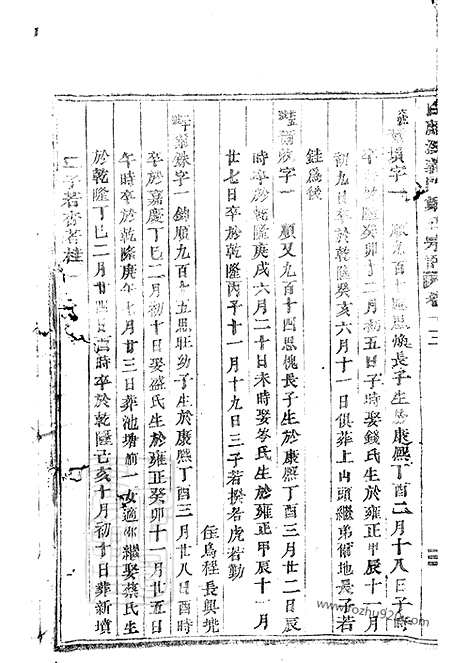 墳字一 順九百十 思煥長子生於康熙丁酉二月十八日子時
卒於雍正癸卯十二月初五日子時娶錢氏生於雍正甲辰十月
初九日卒於乾隆癸亥六月十一日俱葬上內頭繼弟爾地長子若
鈺爲後
字一 順又九百十四思槐長子生於康熙丁酉三月廿二日辰
時卒於乾隆庚戌六月二十日未時娶岑氏生於雍正甲辰十一月
廿七日卒於乾隆丙子十一月十九日三子若揆若虎若勤
住烏程長興兜
字一 錦順九百十五思壯幼子生於康熙丁酉三月廿八日酉時
卒於嘉慶丁巳二月初十日娶盛氏生於雍正癸卯十一月廿五日
午時卒於乾隆庚午七月廿三日葬池塘前一女適 繼娶蔡氏生
於乾隆丁巳二月廿四日酉時卒於乾隆己亥十月初十日葬新墳
二子若杏若桂
www.zohu920.com